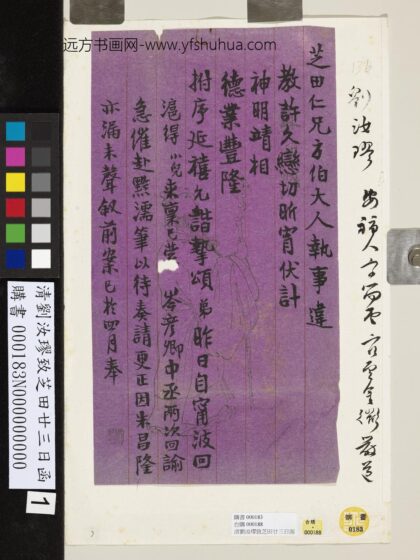 远方书画网-www.yfshuhua.com
136
劉汝璆
芝田仁兄方伯大人執事違
教許久戀切昕宵伏計
神明靖相
德業豐隆
拊序延禧允諧摯頌弟昨日自甯波回
滬得小兒來稟已蒙 岑彥卿中丞兩次回諭
急催赴黔濡筆以待奏請更正因朱昌隆
亦漏未聲敘前案已於四月奉
清劉汝璆致芝田廿三日函
購書 000183N000000000
1
購書 000183
台購 000188
清劉汝璆致芝田廿三日函
台購
000188
購書
0183